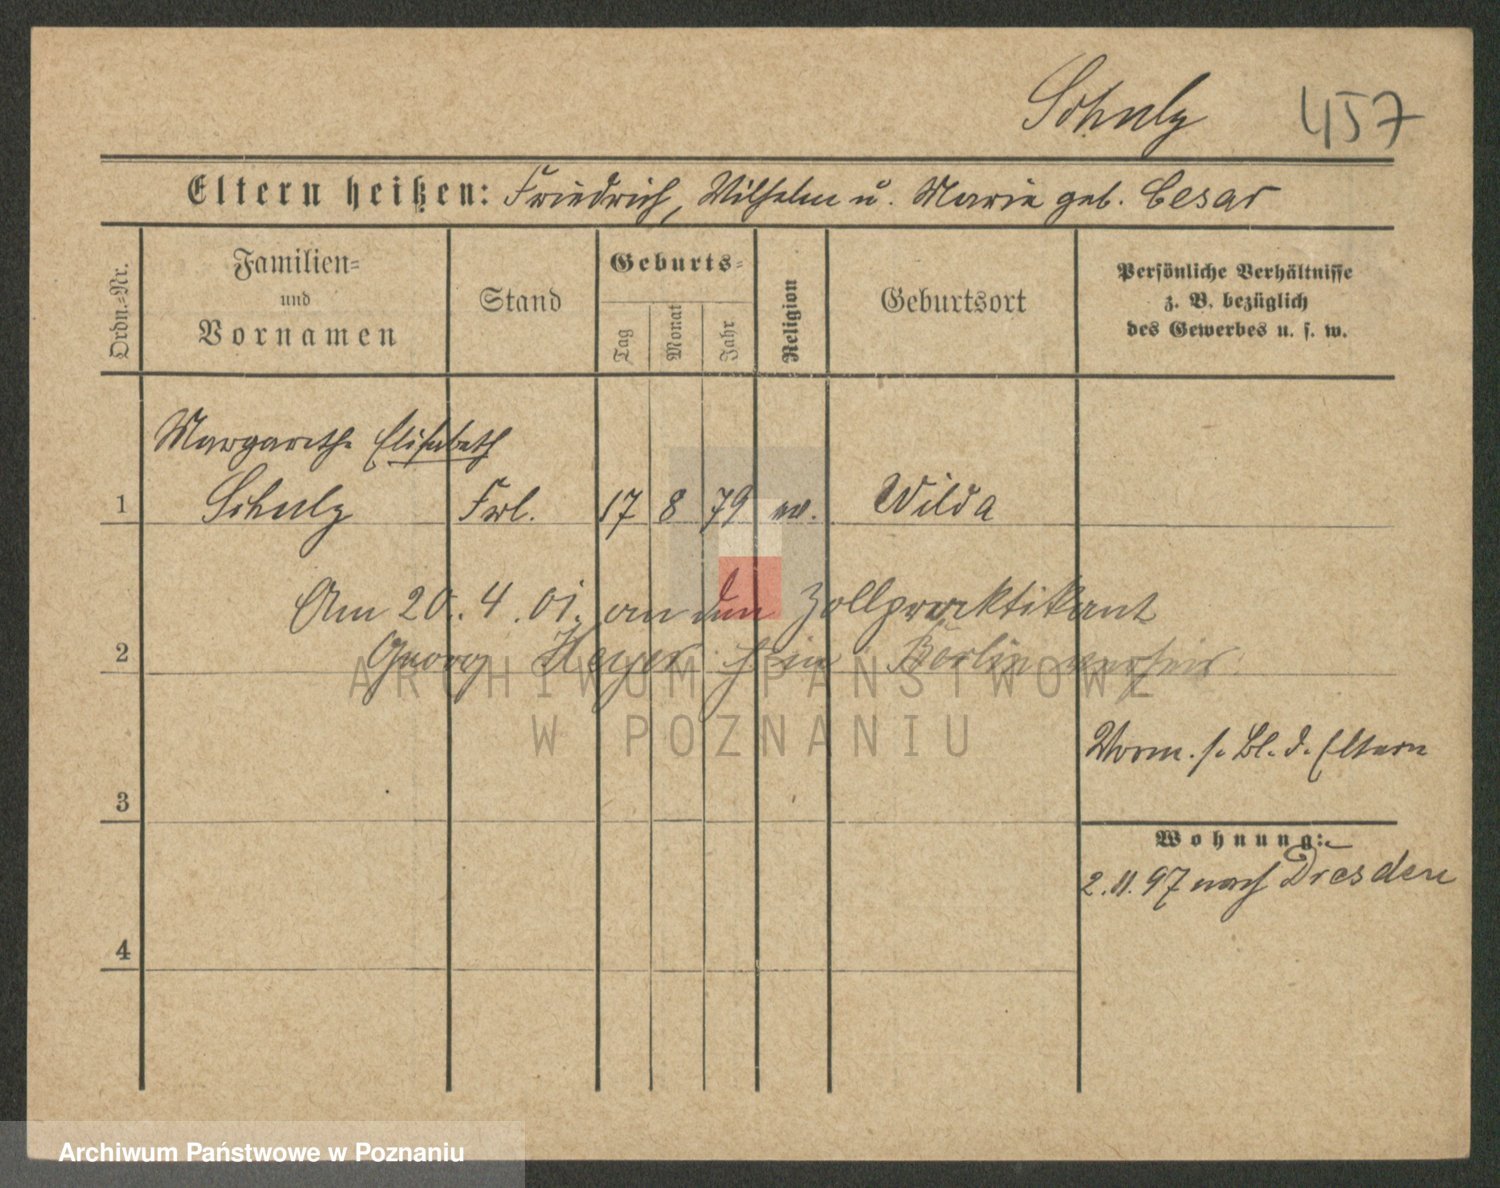 Schulz 457
Eltern heißen: Friedrich, Wilhelm u. Marie geb. Cesar
Ordn.-Nr.
Familien-
und
Vornamen
Stand
Geburts-
Tag
Monat
Jahr
Religion
Geburtsort
Persönliche Verhältnisse
z. B. bezüglich
des Gewerbes u. s. w.
Margarethe Elisabeth
1 Schulz Frl. 17 8 79 ev. Wilda
Am 20. 4. 01. an den Zollpraktikant
2 Georg Heyer in Berlin verheir.
ARCHIWUM PAŃSTWOWE
W POZNANIU
Vorm. s. Bl. d. Eltern
3
Wohnung:
2.11.97 nach Dresden
4
Archiwum Państwowe w Poznaniu